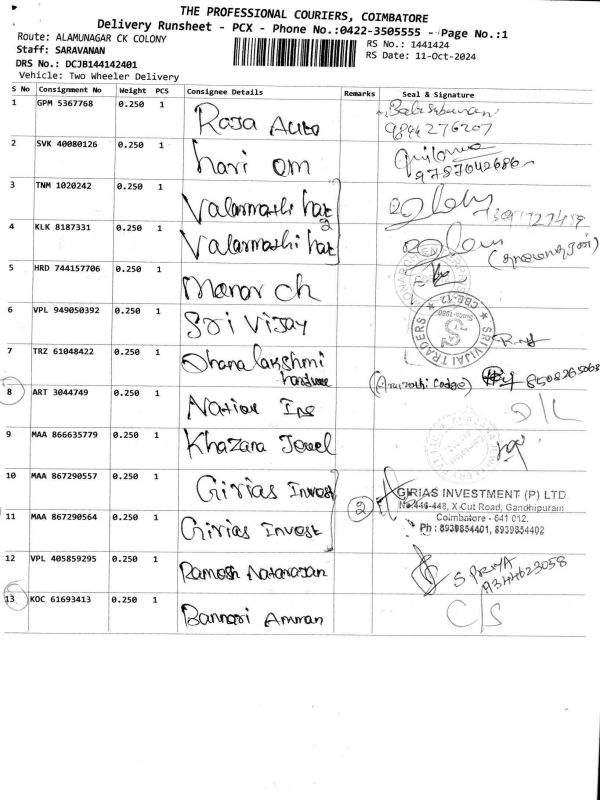 THE PROFESSIONAL COURIERS, COIMBATORE
Delivery Runsheet - PCX - Phone No.:0422-3505555 - Page No.:1
Route: ALAMUNAGAR CK COLONY
RS No.: 1441424
Staff: SARAVANAN
RS Date: 11-Oct-2024
DRS No.: DCJB144142401
Vehicle: Two Wheeler Delivery
S No Consignment No Weight PCS Consignee Details Remarks Seal & Signature
1 GPM 5367768 0.250 1 Raja Auto
2 SVK 40080126 0.250 1 hari om 9787042686
3 TNM 1020242 0.250 1 Valarmathi
4 KLK 8187331 0.250 1 Valarmathi
5 HRD 744157706 0.250 1 Manar ch
6 VPL 949050392 0.250 1 Sri Vijay
SRI VIJAI TRADERS CBE-12 Since 1980
7 TRZ 61048422 0.250 1 Dhanalakshmi
hardware
8 ART 3044749 0.250 1 Nation
9 MAA 866635779 0.250 1 Khazana Jewel
10 MAA 867290557 0.250 1 Girias Invest 2
GIRIAS INVESTMENT (P) LTD
No.446-448, X-Cut Road, Gandhipuram
11 MAA 867290564 0.250 1 Girias Invest
Coimbatore - 641 012.
Ph : 8939854401, 8939854402
12 VPL 405859295 0.250 1 Ramesh Natarajan S PRIYA
13 KOC 61693413 0.250 1 Bannari Amman C/S